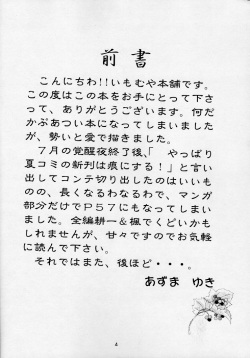 前書
こんにちわ!!いもむや本舗です。
この度はこの本をお手にとって下さ
って、ありがとうございます。何だ
かぶあつい本になってしまいました
が、勢いと愛で描きました。
７月の覚醒夜終了後、「やっぱり
夏コミの新刊は痕にする！」と言い
出してコンテ切り出したのはいいも
のの、長くなるわなるわで、マンガ
部分だけでＰ５７にもなってしまい
ました。全編耕一＆楓でくどいかも
しれませんが、甘々ですのでお気軽
に読んで下さい。
それではまた、後ほど・・・。
あずま　ゆき
4